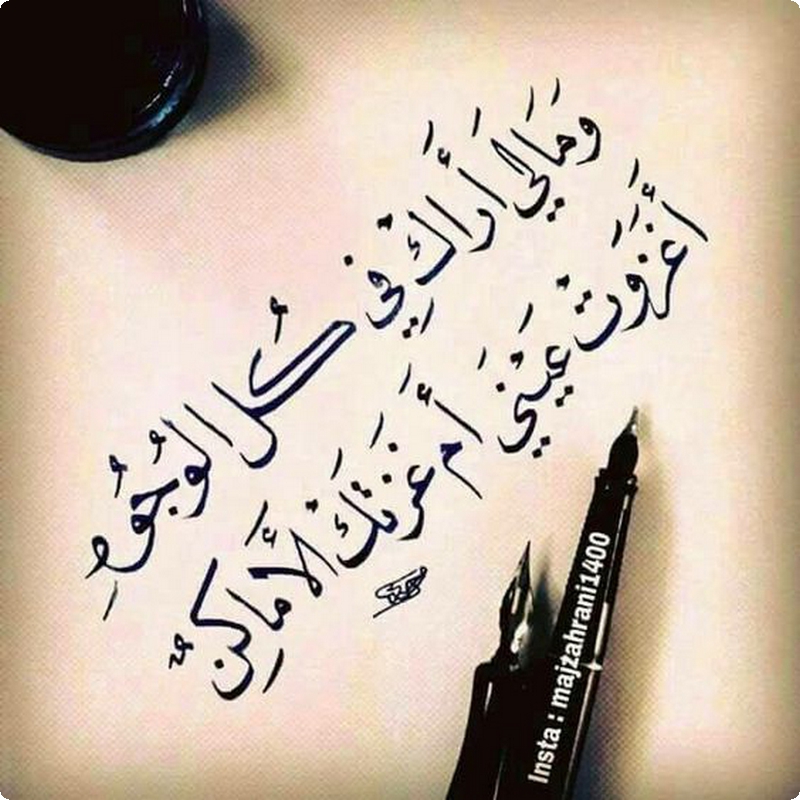 وَمَالِي أَرَاكِ فِي كُل الوُجُوهِ
أَغَزَوتْ عَيْنِيَ أَم غَزَتكْ الأَمَاكِنْ
Insta : majzahrani1400